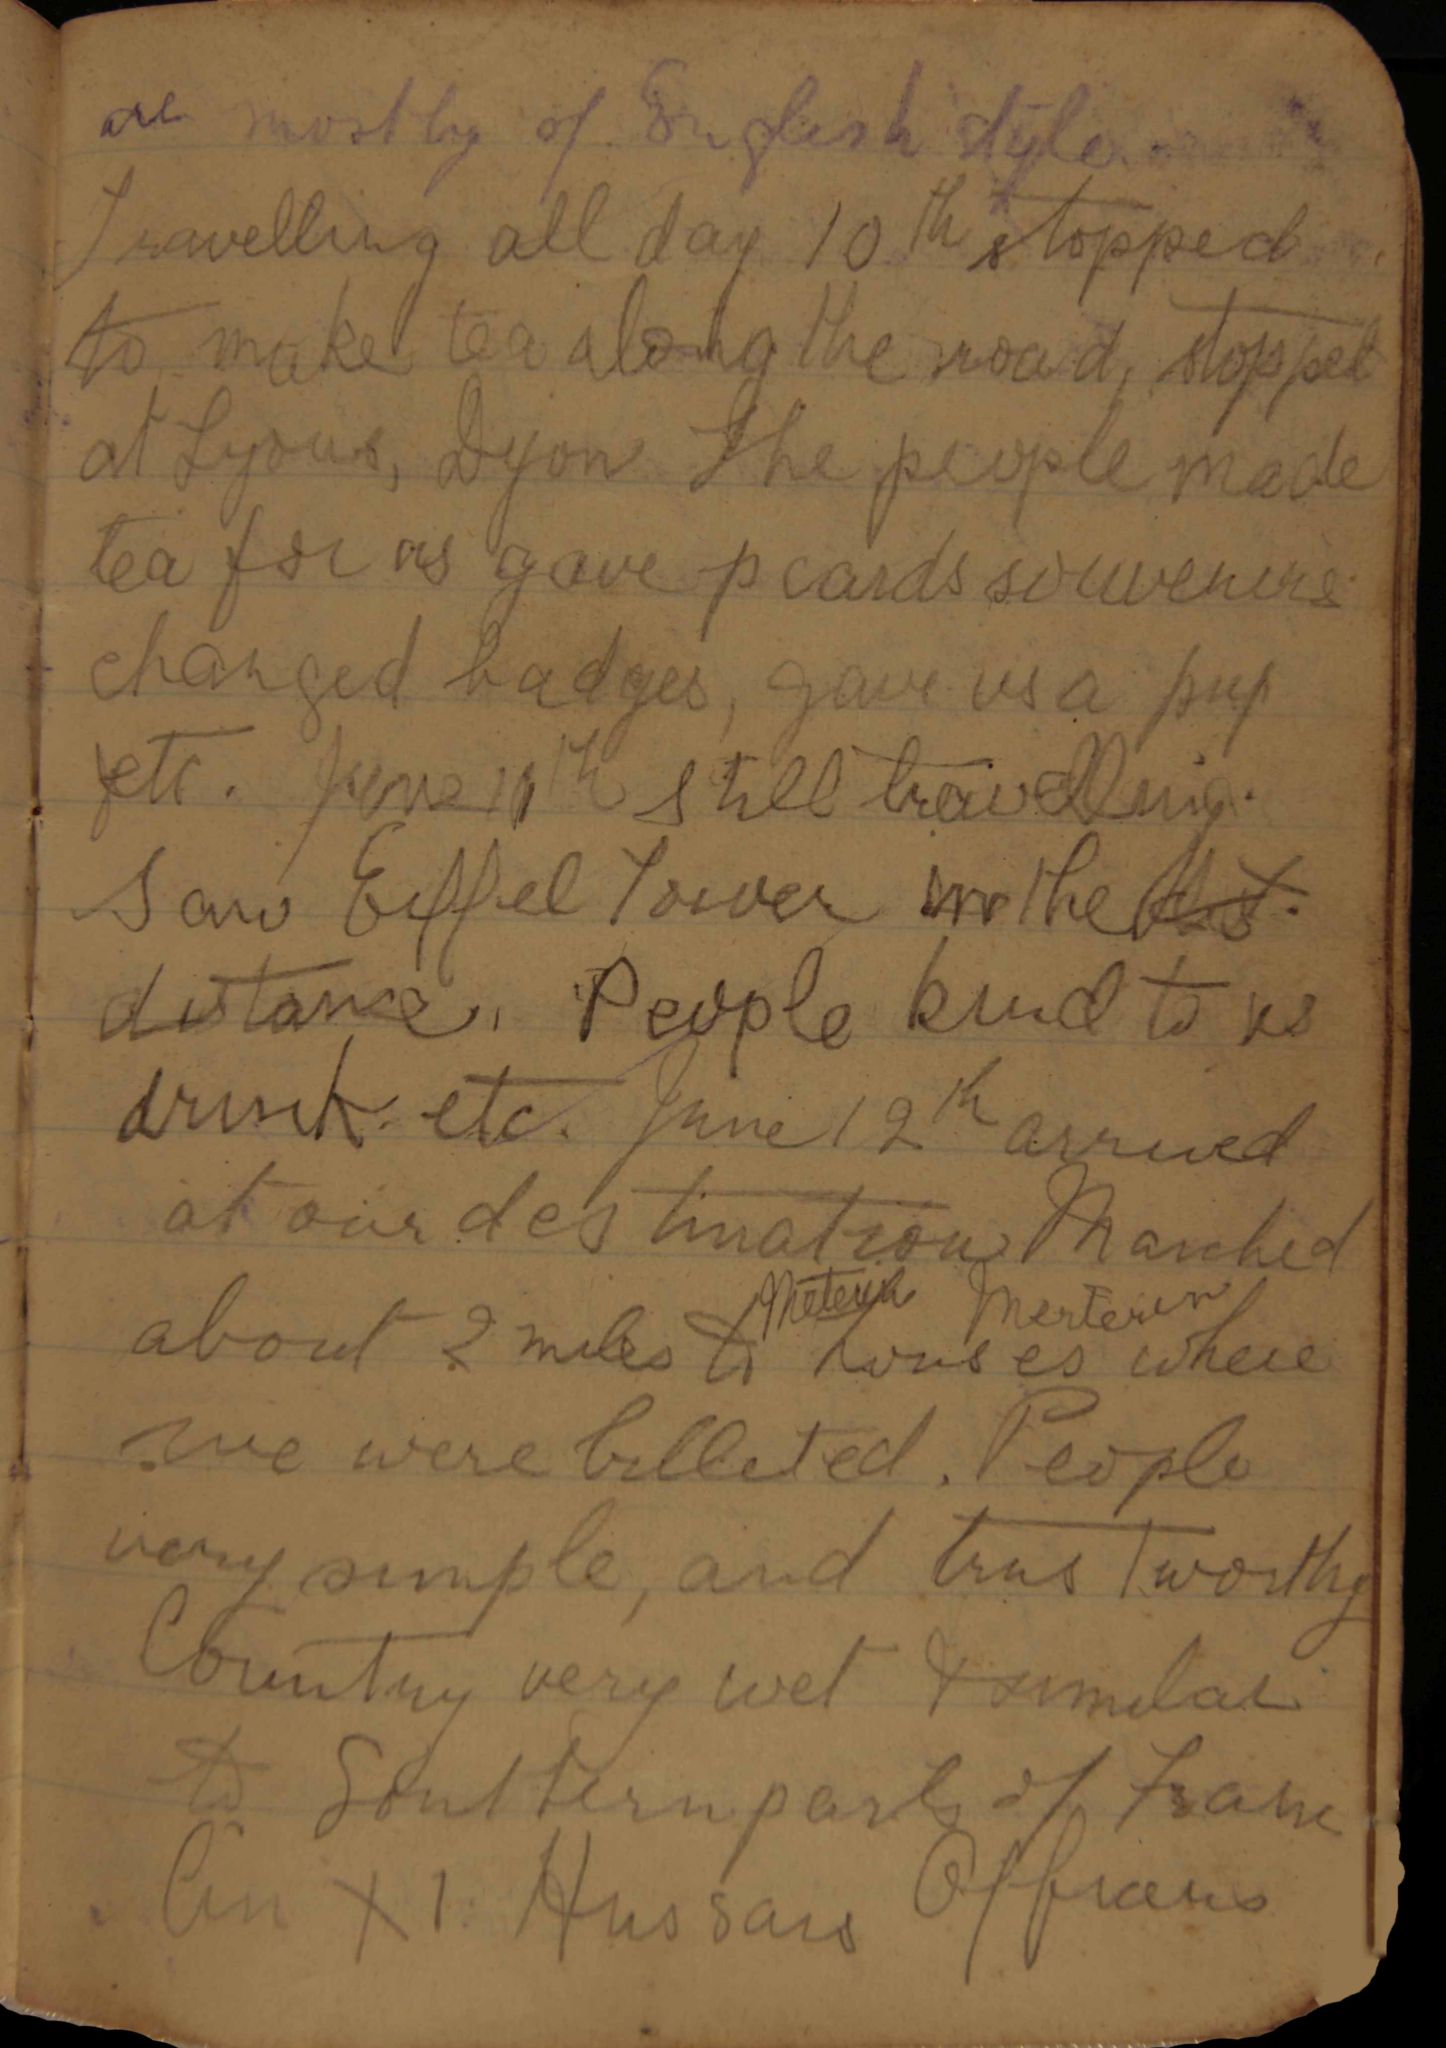 are mostly of English style.
Travelling all day 10th stopped
to make tea along the road, stopped
at Lyons, Dyon The people made
tea for us gave p cards souvenirs
changed badges, gave us a pup
etc. June 11th still travelling.
Saw Eiffel Tower in the dist.
distance. People kind to us
drink etc. June 12th arrived
at our destination Marched
Meterin Merterin
about 2 miles to houses where
we were billeted. People
very simple, and trustworthy
Country very wet & similar
to Southern parts of France
XI Hussars Officers